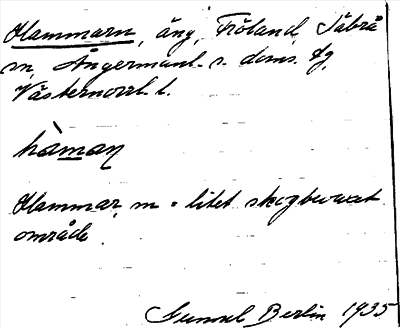 Hammarn, äng, Fröland, Säbrå
sn, Ångermanl. s. doms. dg,
Västernorrl. l.
hàmaṇ
Hammar, m = litet skogbevuxet
område.
Gunnel Berlin 1935